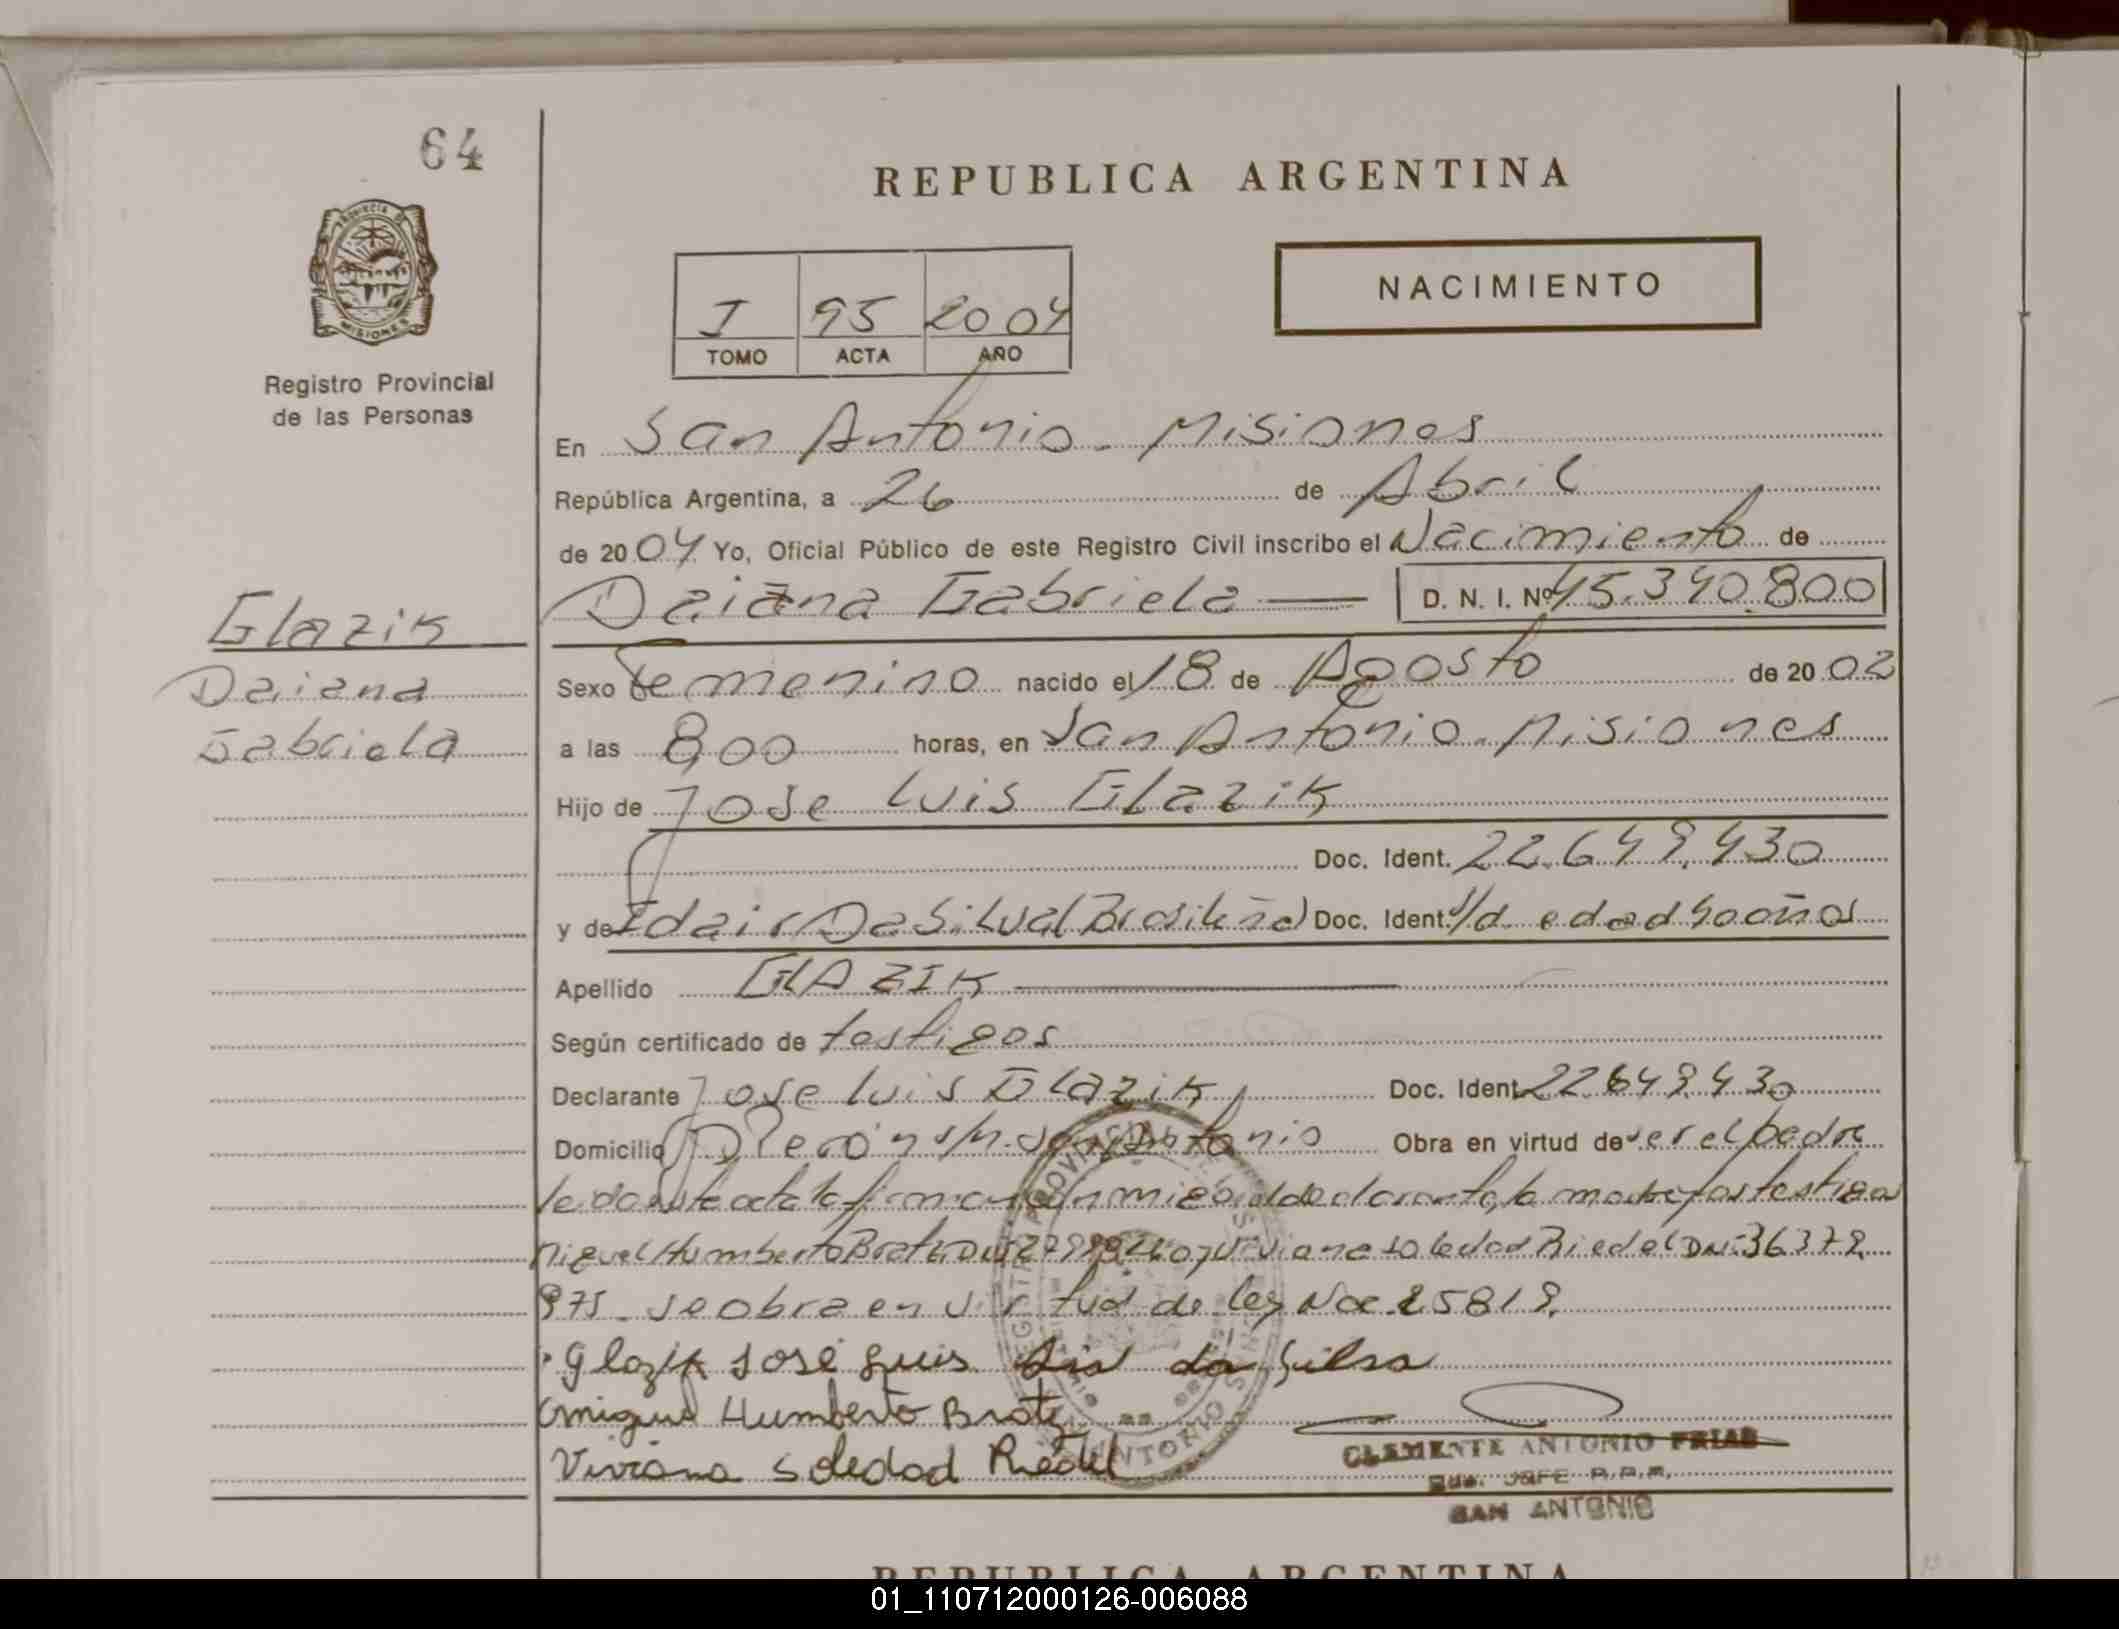 64
REPUBLICA ARGENTINA
NACIMIENTO
I 95 2004
TOMO ACTA AÑO
PROVINCIA DE
MISIONES
Registro Provincial
de las Personas
En San Antonio - Misiones
República Argentina, a 26 de Abril
de 2004 Yo, Oficial Público de este Registro Civil inscribo el Nacimiento de
Glazik
Daiana Gabriela — D. N. I. Nº 45.340.800
Daiana
Sexo Femenino nacido el 18 de Agosto de 2002
Gabriela
a las 8,00 horas, en San Antonio - Misiones
Hijo de Jose Luis Glazik
Doc. Ident. 22.649.430
y de Idair Da Silva (Brasileña) Doc. Ident. s/d edad 40 años
Apellido GLAZIK
Según certificado de testigos
Declarante Jose Luis Glazik Doc. Ident. 22.649.430
Domicilio Perón s/n. San Antonio Obra en virtud de ser el padre
leda este acta la firman conmigo el declarante, la madre y los testigos
Miguel Humberto Bratz DNI Viviana Soledad Riedel DNI 36372
975 - se obra en virtud de ley Nº 25819.
Glazik José Luis da Silva
Miguel Humberto Bratz
Viviana Soledad Riedel
CLEMENTE ANTONIO FRIAS
JEFE R.P.P.
SAN ANTONIO
REPUBLICA ARGENTINA
01_110712000126-006088